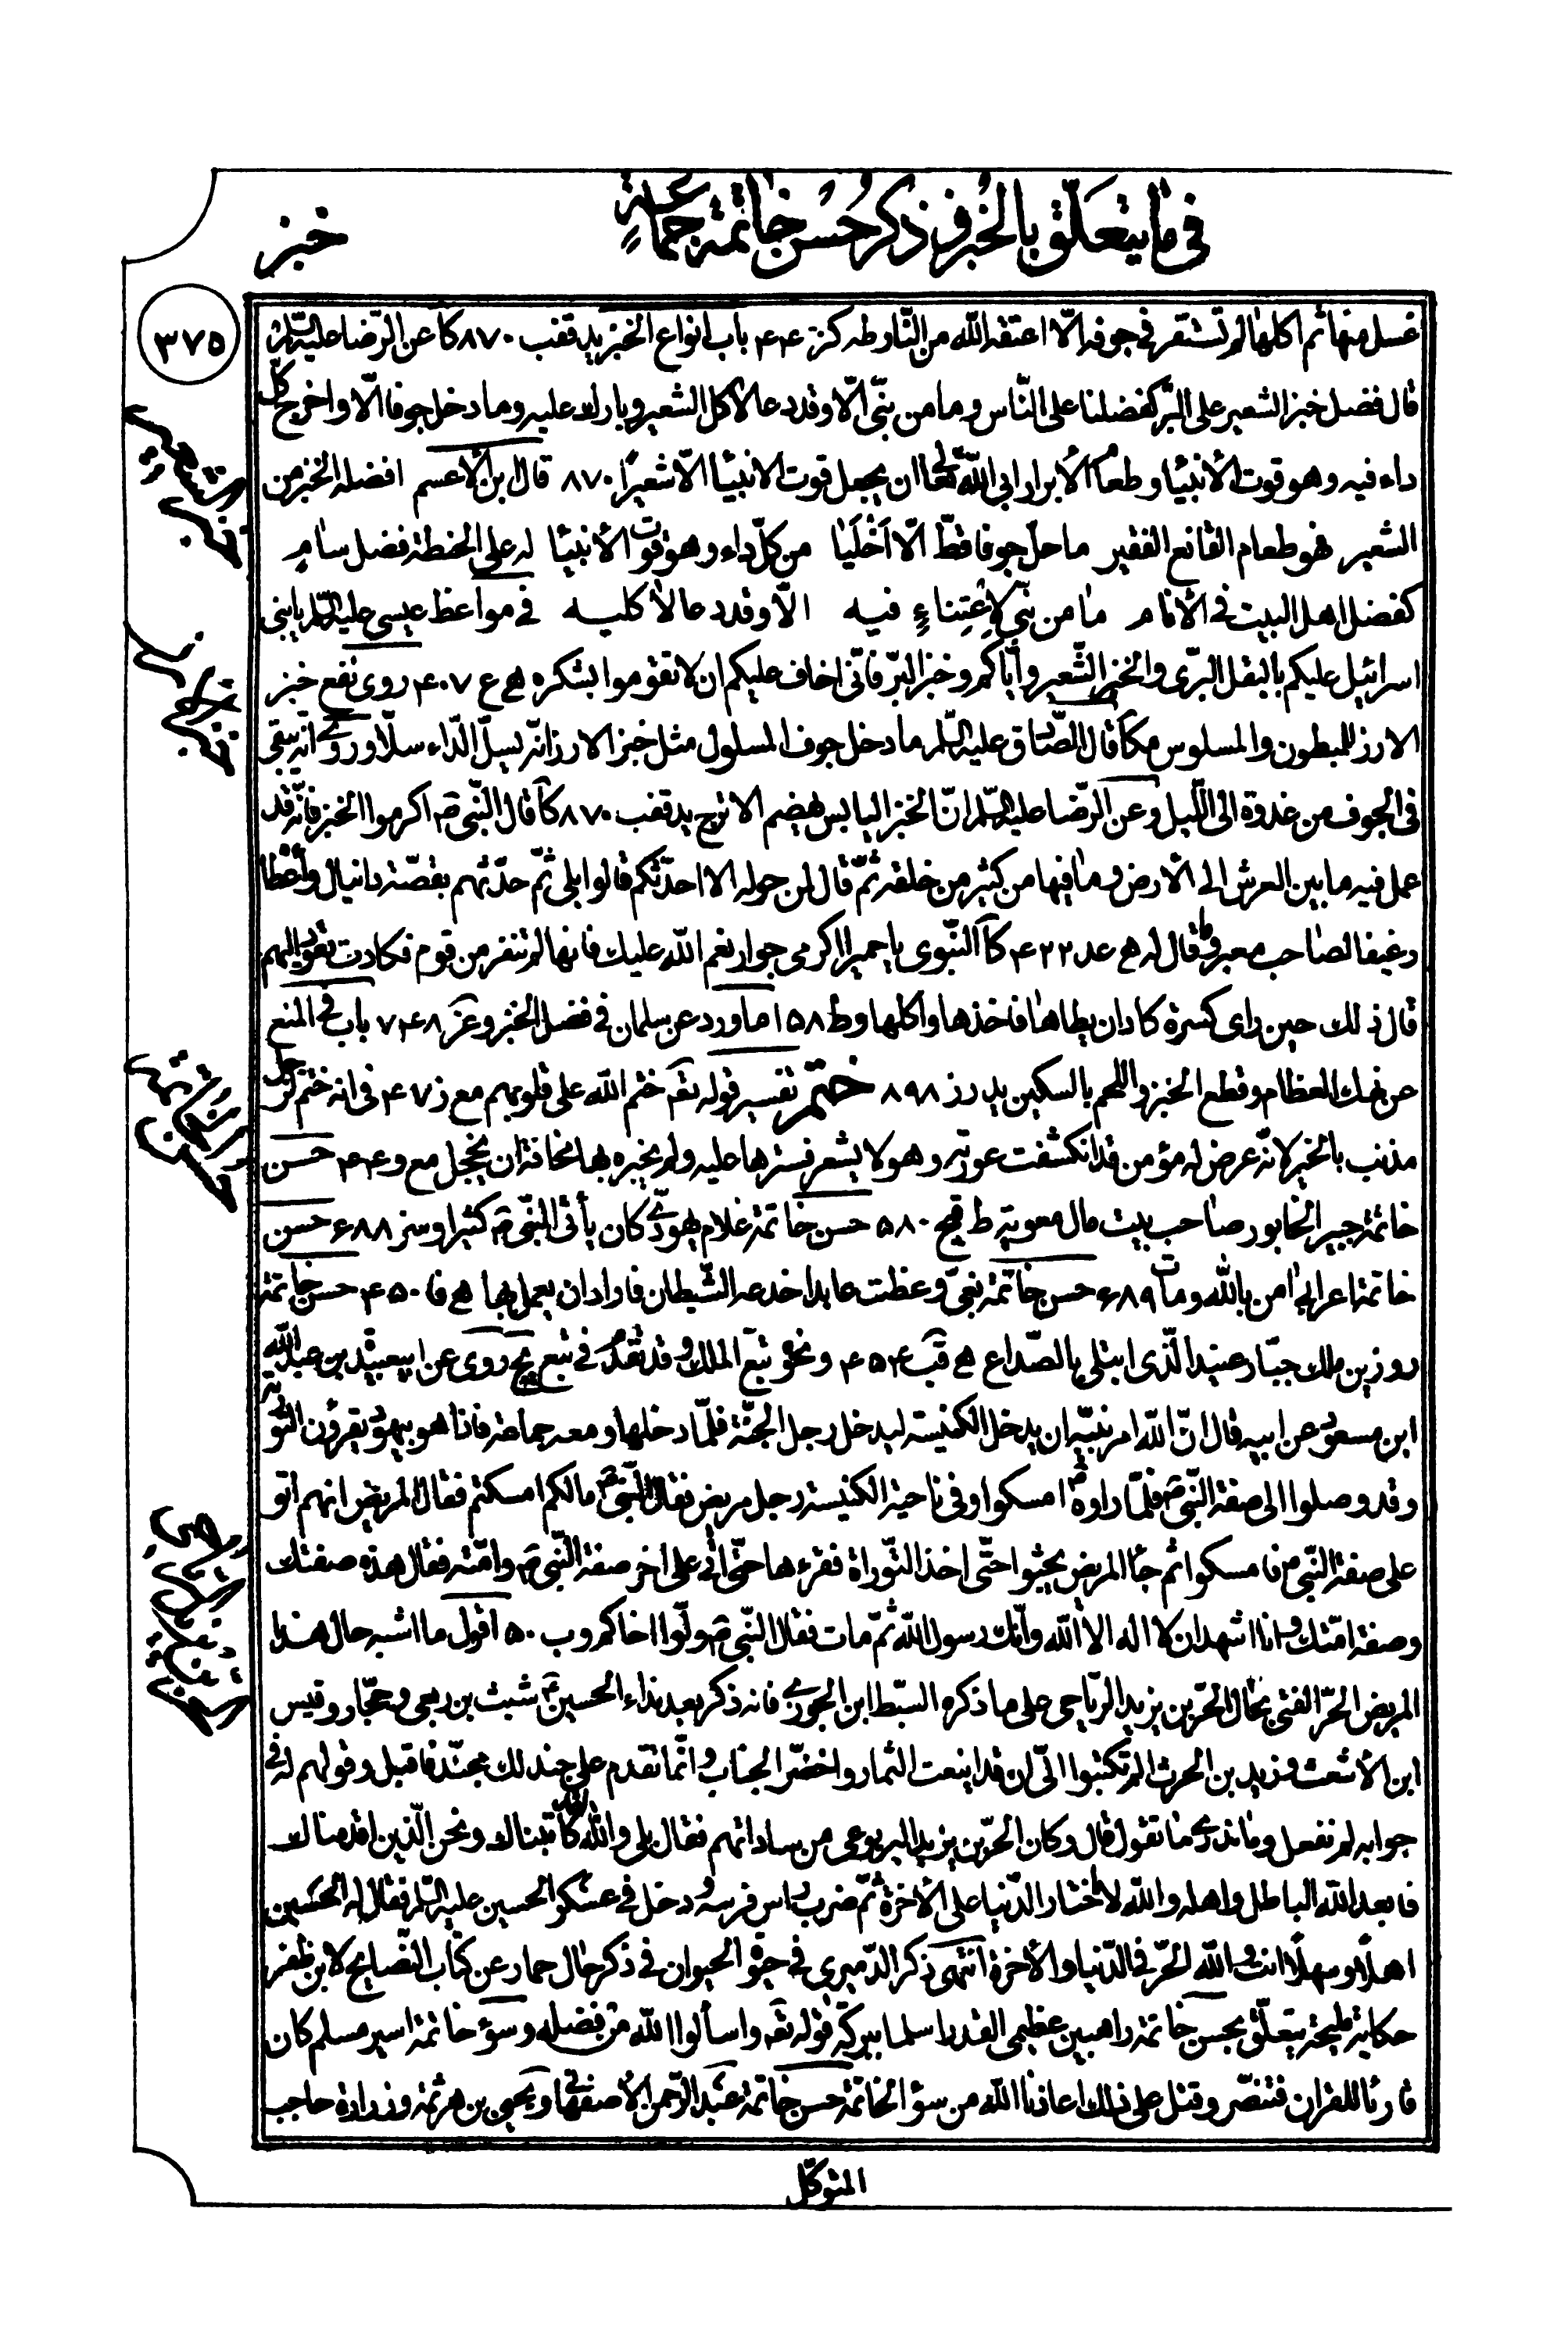 في ما يتعلق بالخبز ذكر حسن خاتمة جماعة
خبز
٣٧٥
غسل منها ثم اكلها لم تستقر في جوفه الّا اعتقه الله من النّار طه كز ٤٤ باب انواع الخبز يد قفب ٨٧٠ كا عن الرّضا عليه السّلم
قال فضل خبز الشعير على البرّ كفضلنا على النّاس وما من نبيّ الّا وقد دعا لاكل الشعير وبارك عليه وما دخل جوفا الّا واخرج كلّ
داء فيه وهو قوت الأنبيا وطعام الأبرار ابى الله تعالى ان يجعل قوت الانبيا الّا شعيرا ٨٧٠ قال ابن الأعسم افضله الخبز من
الشعير فهو طعام القانع الفقير ما حلّ جوفا قطّ الّا اخليا من كلّ داء وهو قوت الأنبيا له على الحنطة فضل سام
كفضل اهل البيت في الأنام ما من نبيّ لاعتناء فيه الّا وقد دعا لأكليه في مواعظ عيسى عليه السّلم يا بني
اسرائيل عليكم بالبقل البرّى والخبز الشّعير وايّاكم وخبز البرّ فانّى اخاف عليكم ان لا تقوموا بشكره هـ ع ٤٠٧ روى نفع خبز
الارز للمبطون والمسلوس مكا قال الصّادق عليه السّلم ما دخل جوف المسلول مثل خبز الارز انّه يسلّ الدّاء سلّا وروى انّه يبقى
في الجوف من غدوة الى اللّيل وعن الرّضا عليه السّلم انّ الخبز اليابس يهضم الاترج يد قفب ٨٧٠ كا قال النّبى ص اكرموا الخبز فانّه قد
عمل فيه ما بين العرش الى الأرض وما فيها من كثير من خلقه ثمّ قال لمن حوله الا احدّثكم قالوا بلى ثمّ حدّثهم بقصّة دانيال واعطا
رغيفا لصاحب معبر وما قال له هـ عد ٤٢٢ كا النّبوى يا حميرا اكرمى جوار نعم الله عليك فانها لم تنفر من قوم فكادت تعود اليهم
قال ذلك حين راى كسرة كاد ان يطاها فاخذها واكلها وط ١٥٨ ما ورد عن سلمان في فضل الخبز وعز ٧٤٨ باب في المنع
عن نهك العظام وقطع الخبز واللحم بالسكين يد رز ٨٩٨ ختم تفسير قوله تع ختم الله على قلوبهم مع ز ٤٧ في انه ختم لرجل
مذنب بالخير لانّه عرض له مؤمن قد انكشفت عورته وهو لا يشعر فسترها عليه ولم يخبره بها مخافة ان يخجل مع و ٤٤ حسن
خاتمة جبير الخابور صاحب بيت مال معوية ط قيج ٥٨٠ حسن خاتمة غلام يهودىّ كان يأتى النّبى ص كثيرا وسز ٦٨٨ حسن
خاتمة اعرابى امن بالله ومات ٦٨٩ حسن خاتمة بغىّ وعظت عابدا خدعه الشّيطان فاراد ان يعمل بها هـ فا ٤٥٠ حسن خاتمة
روزين ملك جبّار عنيد الّذى ابتلى بالصّداع هـ قب ٤٥٤ ونحو تبّع الملك وقد تقدم في تبع يج روى عن ابيعبيدة بن عبد الله
ابن مسعود عن ابيه قال انّ الله امر نبيّه ان يدخل الكنيسة ليدخل رجل الجنّة فلمّا دخلها ومعه جماعة فاذا هو بيهود يقرؤن التّورية
وقد وصلوا الى صفة النّبى ص فلمّا راوه ص امسكوا وفى ناحية الكنيسة رجل مريض فقال النّبى ص ما لكم امسكتم فقال المريض انهم اتو
على صفة النّبى ص فامسكوا ثم جاء المريض يجثوا حتّى اخذ التّوراة فقرءها حتّى اتى على اخر صفة النّبى ص وامّته فقال هذه صفتك
وصفة امّتك وانا اشهد ان لا اله الا الله وانّك رسول الله ثمّ مات فقال النّبى ص ولّوا اخاكم و ب ٥٠ اقول ما اشبه حال هذا
المريض الحرّ الفتى بحال الحرّ بن يزيد الرّياحى على ما ذكره السّبط ابن الجوزى فانه ذكر بعد نداء الحسين ع شبث بن ربعى وحجّار وقيس
ابن الأشعث وزيد بن الحرث الم تكتبوا الىّ ان قد اينعت الثمار واخضرّ الجناب وانّما تقدم على جند لك مجنّد فاقبل وقولهم له في
جوابه لم نفعل وما ندرى ما تقول قال وكان الحرّ بن يزيد اليربوعى من ساداتهم فقال بلى والله لقد كاتبناك ونحن الّذين اقدمناك
فابعد الله الباطل واهله والله لا اختار الدّنيا على الأخرة ثمّ ضرب راس فرسه ودخل في عسكر الحسين عليه السّلم فقال له الحسين
اهلاً وسهلاً انت والله الحرّ في الدّنيا والأخرة انتهى ذكر الدّميرى في حيوة الحيوان في ذكر حال حمار عن كتاب النّصايح لابن ظفر
حكاية مليحة يتعلّق بحسن خاتمة راهبين عظيمى القدر اسلما ببركة قوله تع واسألوا الله من فضله وسؤ خاتمة اسير مسلم كان
قارئا للقران فتنصّر وقتل على ذلك اعاذنا الله من سؤ الخاتمة حسن خاتمة عبد الرّحمن الأصفهانى ويحيى بن هرثمة وزرارة حاجب
المتوكّل